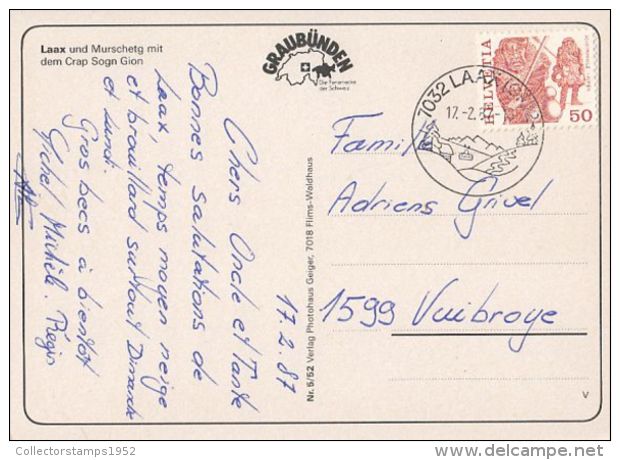 Laax und Murschetg mit
dem Crap Sogn Gion
GRAUBÜNDEN
Die Ferienecke
der Schweiz
17.2.87
Chers Oncle et Tante
Bonnes salutations de
Laax, temps moyen neige
et brouillard surtout Dimanche
et lundi.
Gros becs à bientôt
Michèle. Régis
Nr. 5/52 Verlag Photohaus Geiger, 7018 Flims-Waldhaus
7032 LAAX
17.-2.
HELVETIA
50
Famil
Adriens Grivel
1599 Vuibroye
V
Collectorstamps1952
delcampe.net